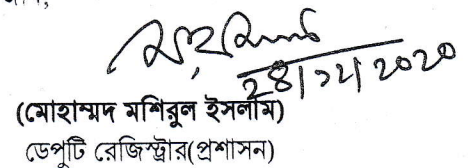 ২৪/১২/২০২০
(মোহাম্মদ মশিরুল ইসলাম)
ডেপুটি রেজিস্ট্রার(প্রশাসন)